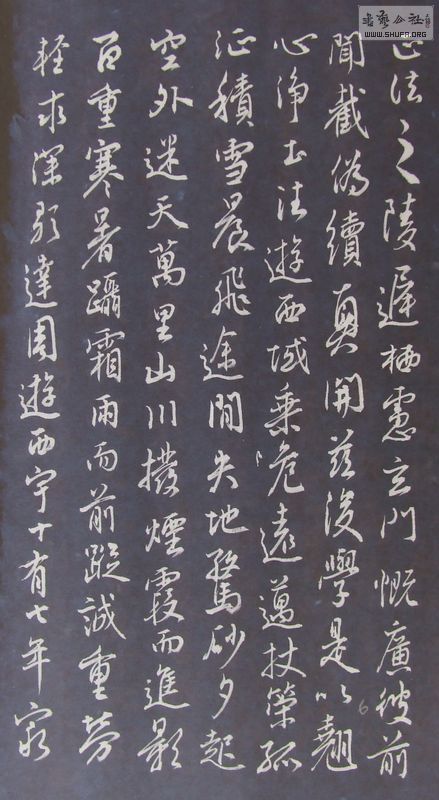 正法之陵遲栖慮玄門慨廣彼前
聞截偽續真開茲後學是以翹
心淨土法遊西域乘危遠邁杖策孤
征積雪晨飛途間失地驚砂夕起
空外迷天萬里山川撥煙霞而進影
百重寒暑躡霜雨而前蹤誠重勞
輕求深願達周遊西宇十有七年窮
6
書藝公社
WWW.SHUFA.ORG